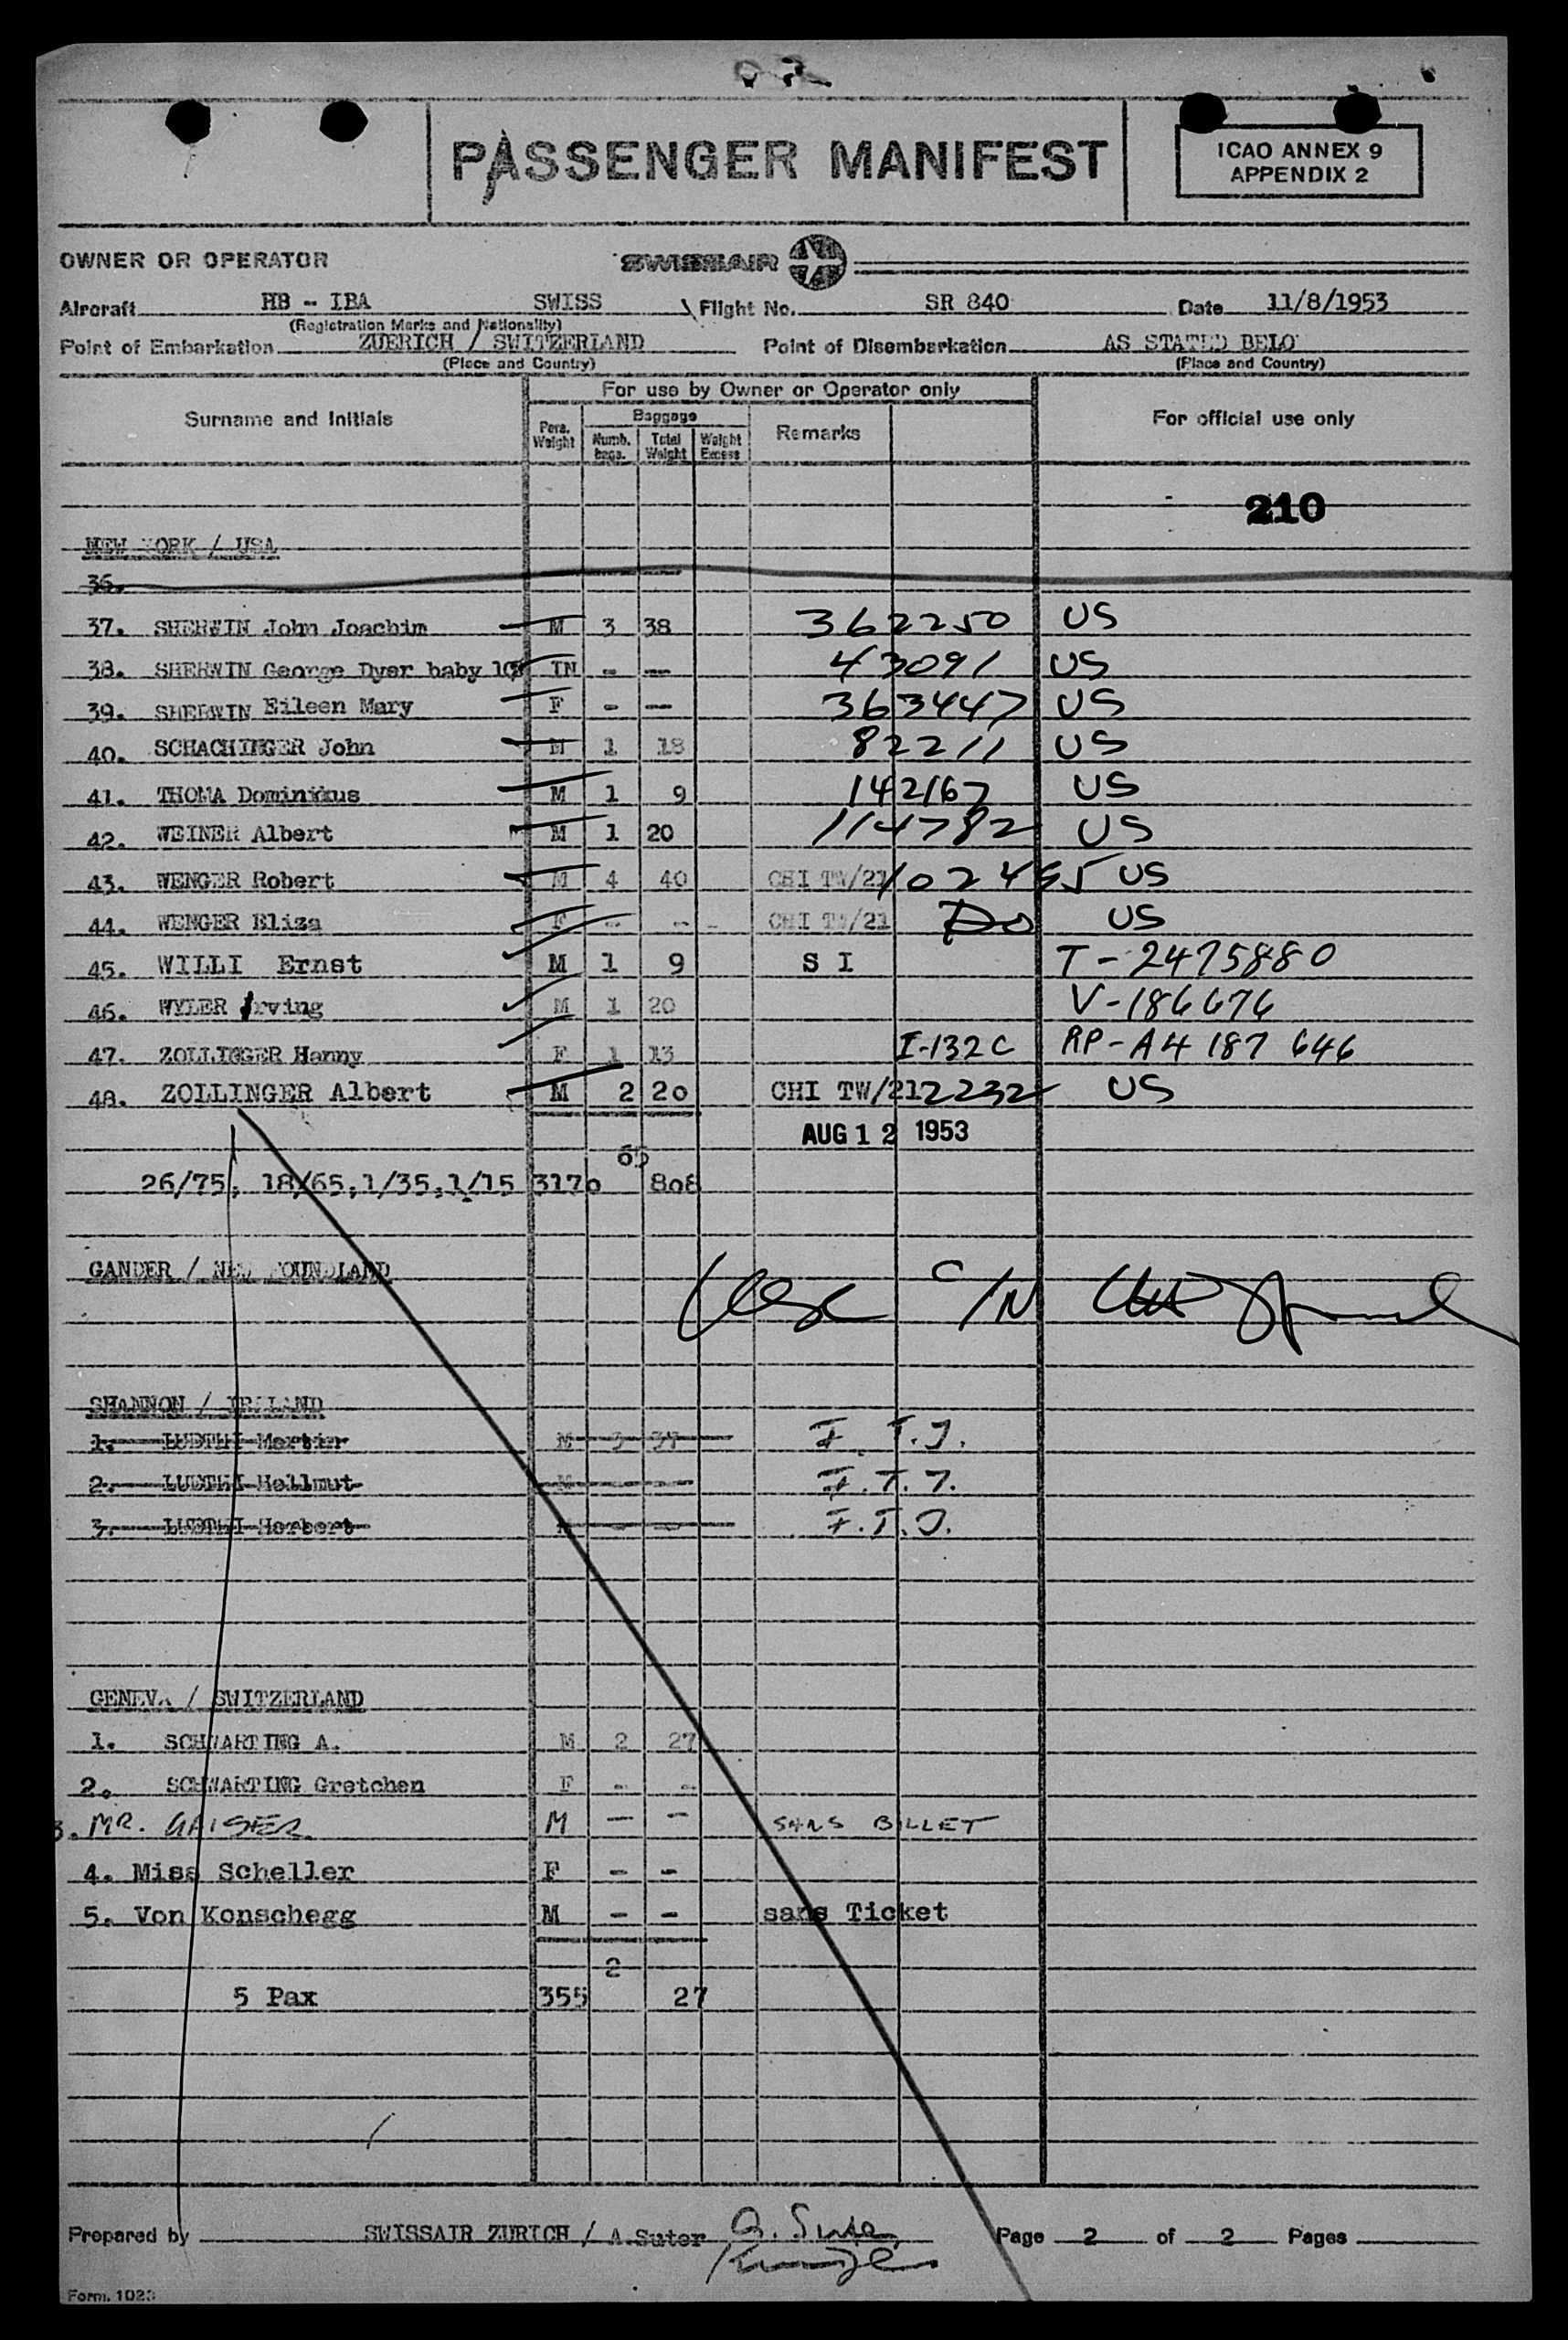 PASSENGER MANIFEST
ICAO ANNEX 9
APPENDIX 2
OWNER OR OPERATOR SWISSAIR
Aircraft HB - IBA SWISS Flight No. SR 840 Date 11/8/1953
(Registration Marks and Nationality)
Point of Embarkation ZUERICH / SWITZERLAND Point of Disembarkation AS STATED BELO
(Place and Country) (Place and Country)
For use by Owner or Operator only
Surname and Initials Pers. Weight Baggage Numb. bags. Total Weight Weight Excess Remarks For official use only
210
NEW YORK / USA
36.
37. SHERWIN John Joachim M 3 38 362250 US
38. SHERWIN George Dyer baby IN - -- 43091 US
39. SHERWIN Eileen Mary F - -- 363447 US
40. SCHACHINGER John M 1 18 82211 US
41. THOMA Dominikus M 1 9 142167 US
42. WEINER Albert M 1 20 114782 US
43. WENGER Robert M 4 40 CHI TW/21 US
44. WENGER Eliza F - - - CHI TW/21 Do US
45. WILLI Ernst M 1 9 S I T-2475880
46. WYLER Irving M 1 20 V-186676
47. ZOLLINGER Hanny F 1 13 I-132C RP-A4 187 646
48. ZOLLINGER Albert M 2 20 CHI TW/212232 US
AUG 12 1953
65
26/75, 18/65,1/35,1/15 3170 808
GANDER / NEW FOUNDLAND
SHANNON / IRELAND
1. LUETHI Martin M 3 37
2. LUETHI Hellmut M - -
3. LUETHI Herbert M - -
GENEVA / SWITZERLAND
1. SCHWARTING A. M 2 27
2. SCHWARTING Gretchen F - -
3. MR. GAISER M - - SANS BILLET
4. Miss Scheller F - -
5. Von Konschegg M - - sans Ticket
2
5 Pax 355 27
Prepared by SWISSAIR ZURICH / A.Suter A. Suter Page 2 of 2 Pages
Form. 1023